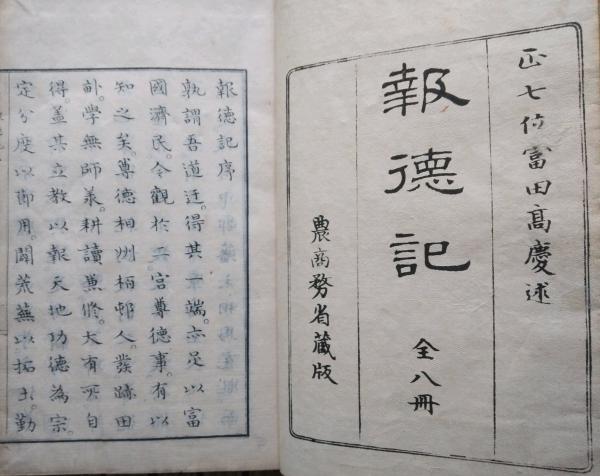 正七位富田高慶述
報德記
全八冊
農商務省藏版
報德記序
孰謂吾道迂。得其一端。亦足以富
國濟民。今觀於二宮尊德事。有以
知之矣。尊德相州栢邨人。發跡田
畝。學無師承。耕讀兼修。大有所自
得。蓋其立教以報天地功德為宗。
定分度以節用。開荒蕪以拓土。勤